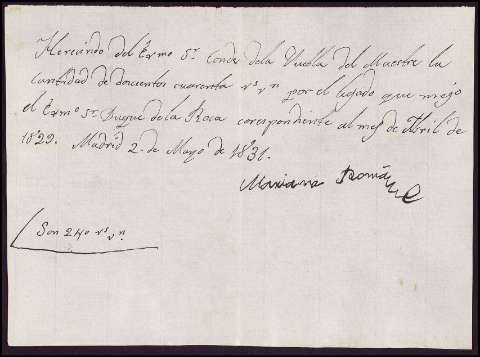 He recivido del Exmo Sr Conde de la Puebla del Maestre la
Cantidad de docientos cuarenta rs vn por el legado que me dejo
el Exmo Sr Duque de la Roca corespondiente al mes de Abril de
1829. Madrid 2 de Mayo de 1831.
Mariana Román
Son 240 rs vn.